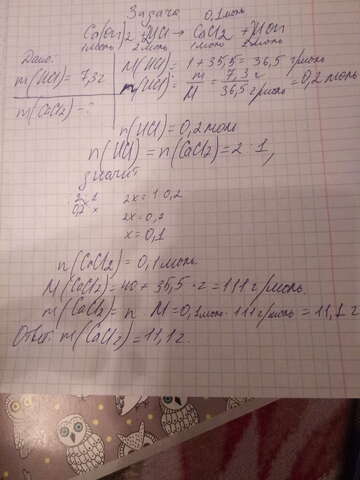 Задача
0,1моль
Ca(OH)2 + 2HCl → CaCl2 + 2HOH
1моль 2моль 1моль 2моль
Дано:
m(HCl) = 7,3г
m(CaCl2) = ?
M(HCl) = 1 + 35,5 = 36,5 г/моль
n(HCl) = m/M = 7,3 г/36,5 г/моль = 0,2 моль
n(HCl) = 0,2 моль
n(HCl) = n(CaCl2) = 2 : 1,
значит
2 1
0,2 x
2x = 1·0,2
2x = 0,2
x = 0,1
n(CaCl2) = 0,1 моль
M(CaCl2) = 40 + 35,5 · 2 = 111 г/моль
m(CaCl2) = n M = 0,1 моль · 111 г/моль = 11,1 г
Ответ: m(CaCl2) = 11,1 г.